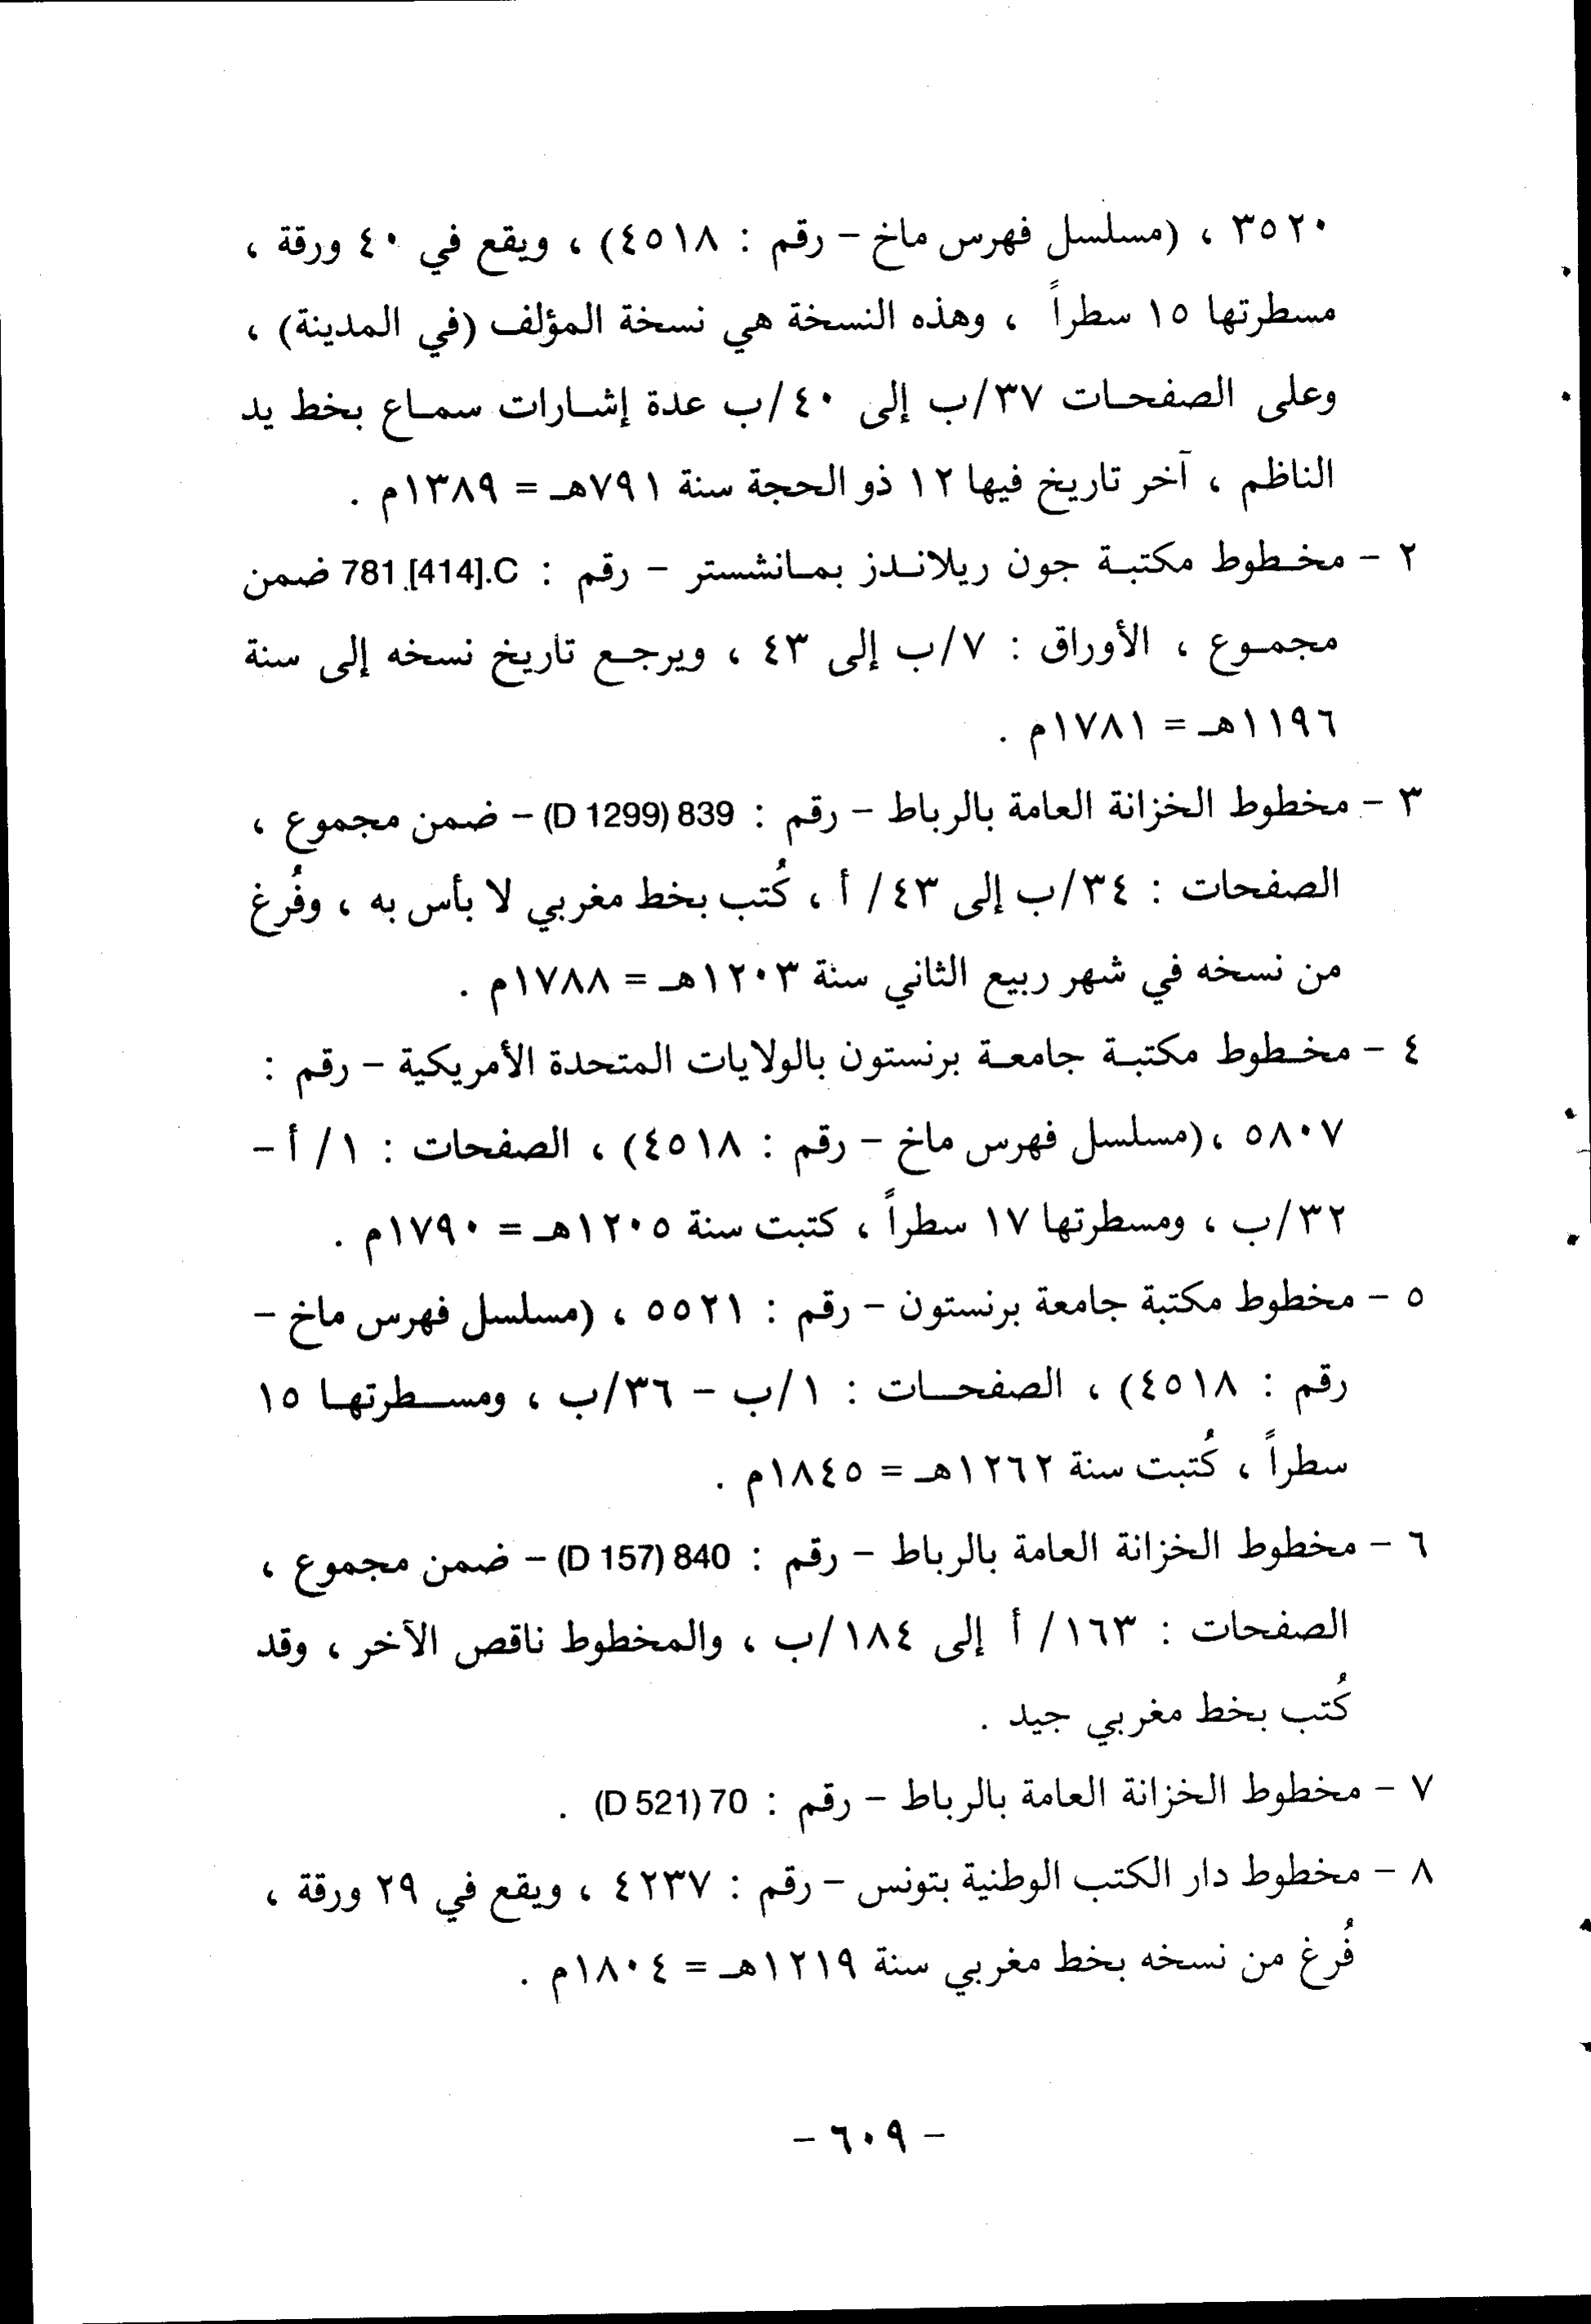 ٣٥٢٠ ، (مسلسل فهرس ماخ - رقم : ٤٥١٨) ، ويقع في ٤٠ ورقة ،
مسطرتها ١٥ سطراً ، وهذه النسخة هي نسخة المؤلف (في المدينة) ،
وعلى الصفحات ٣٧/ب إلى ٤٠/ب عدة إشارات سماع بخط يد
الناظم ، آخر تاريخ فيها ١٢ ذو الحجة سنة ٧٩١هـ = ١٣٨٩م .
٢ - مخطوط مكتبة جون ريلاندز بمانشستر - رقم : 781 [414].C ضمن
مجموع ، الأوراق : ٧/ب إلى ٤٣ ، ويرجع تاريخ نسخه إلى سنة
١١٩٦هـ = ١٧٨١م .
٣ - مخطوط الخزانة العامة بالرباط - رقم : 839 (D 1299) - ضمن مجموع ،
الصفحات : ٣٤/ب إلى ٤٣/ أ ، كُتب بخط مغربي لا بأس به ، وفُرغ
من نسخه في شهر ربيع الثاني سنة ١٢٠٣هـ = ١٧٨٨م .
٤ - مخطوط مكتبة جامعة برنستون بالولايات المتحدة الأمريكية - رقم :
٥٨٠٧ ، (مسلسل فهرس ماخ - رقم : ٤٥١٨) ، الصفحات : ١/ أ -
٣٢/ب ، ومسطرتها ١٧ سطراً ، كتبت سنة ١٢٠٥هـ = ١٧٩٠م .
٥ - مخطوط مكتبة جامعة برنستون - رقم : ٥٥٢١ ، (مسلسل فهرس ماخ -
رقم : ٤٥١٨) ، الصفحات : ١/ب - ٣٦/ب ، ومسطرتها ١٥
سطراً ، كُتبت سنة ١٢٦٢هـ = ١٨٤٥م .
٦ - مخطوط الخزانة العامة بالرباط - رقم : 840 (D 157) - ضمن مجموع ،
الصفحات : ١٦٣/ أ إلى ١٨٤/ب ، والمخطوط ناقص الآخر ، وقد
كُتب بخط مغربي جيد .
٧ - مخطوط الخزانة العامة بالرباط - رقم : 70 (D 521) .
٨ - مخطوط دار الكتب الوطنية بتونس - رقم : ٤٢٣٧ ، ويقع في ٢٩ ورقة ،
فُرغ من نسخه بخط مغربي سنة ١٢١٩هـ = ١٨٠٤م .
- ٦٠٩ -